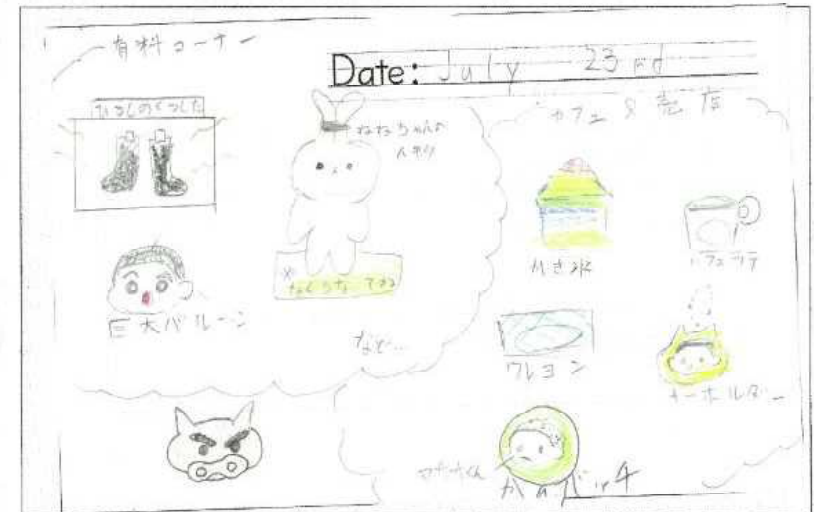 有料コーナー
Date: July 23rd
ひろしのくつした
ねねちゃんの
人形
※
なぐらないでね
巨大バルーン
など…
カフェ&売店
かき氷
カフェラテ
クレヨン
キーホルダー
マサオくん
かんバッチ